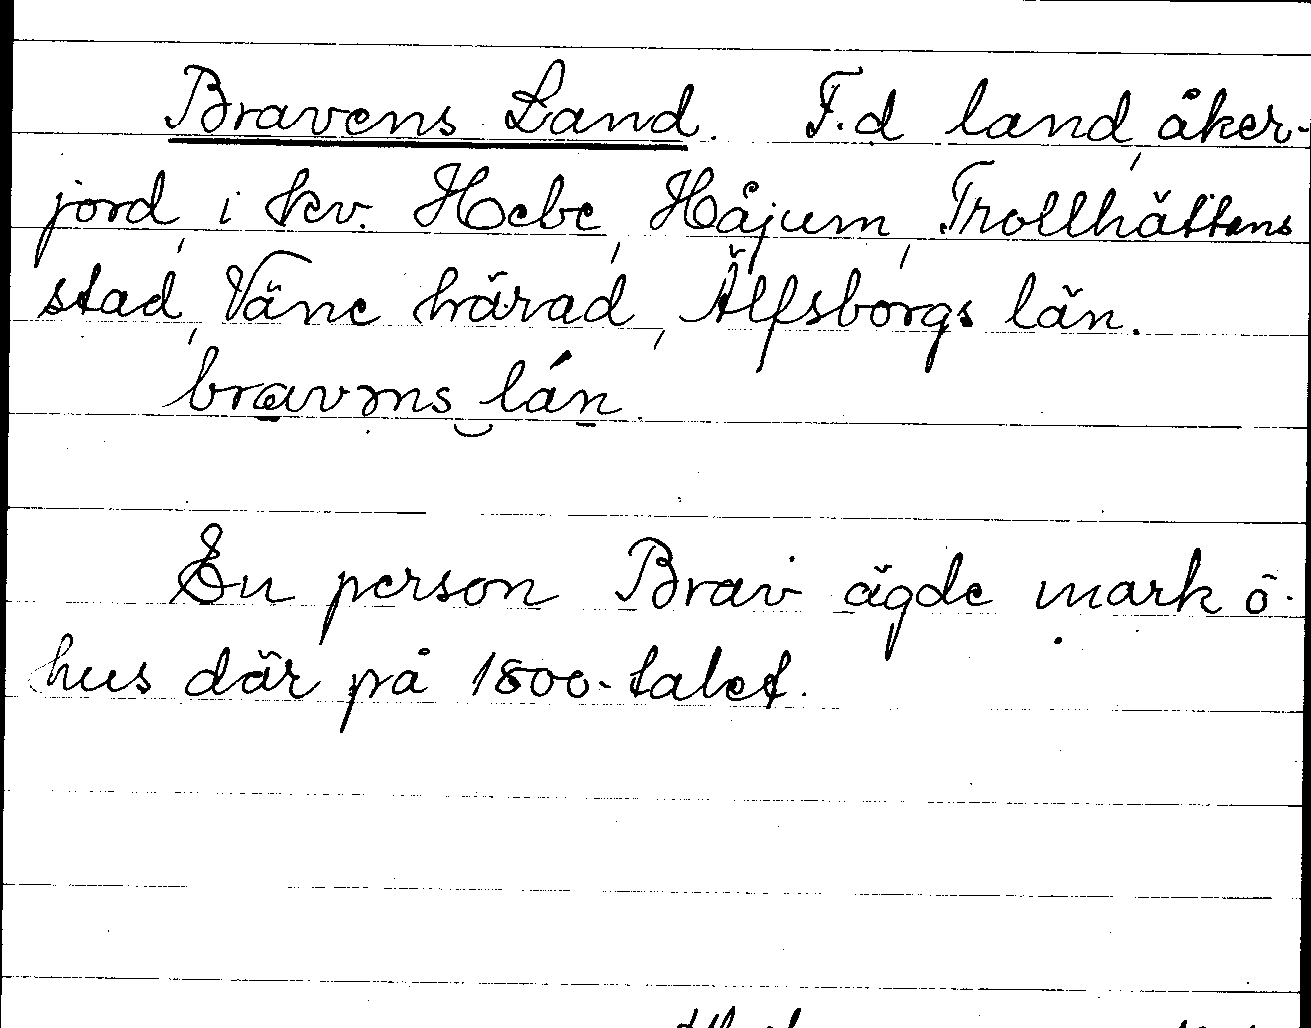 Bravens Land. F.d land, åker-
jord, i kv. Hebe, Håjum, Trollhättans
stad, Väne härad, Älfsborgs län.
bravəns lán.
En person Brav ägde mark o.
hus där på 1800-talet.